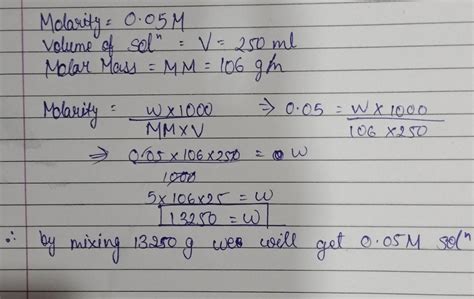 Molarity = 0.05M
Volume of solⁿ = V = 250 ml
Molar Mass = MM = 106 g/m
Molarity = W×1000 / MM×V ⇒ 0.05 = W×1000 / 106×250
⇒ 0.05×106×250 / 1000 = W
5×106×25 = W
13250 = W
∴ by mixing 13250 g we will get 0.05M solⁿ